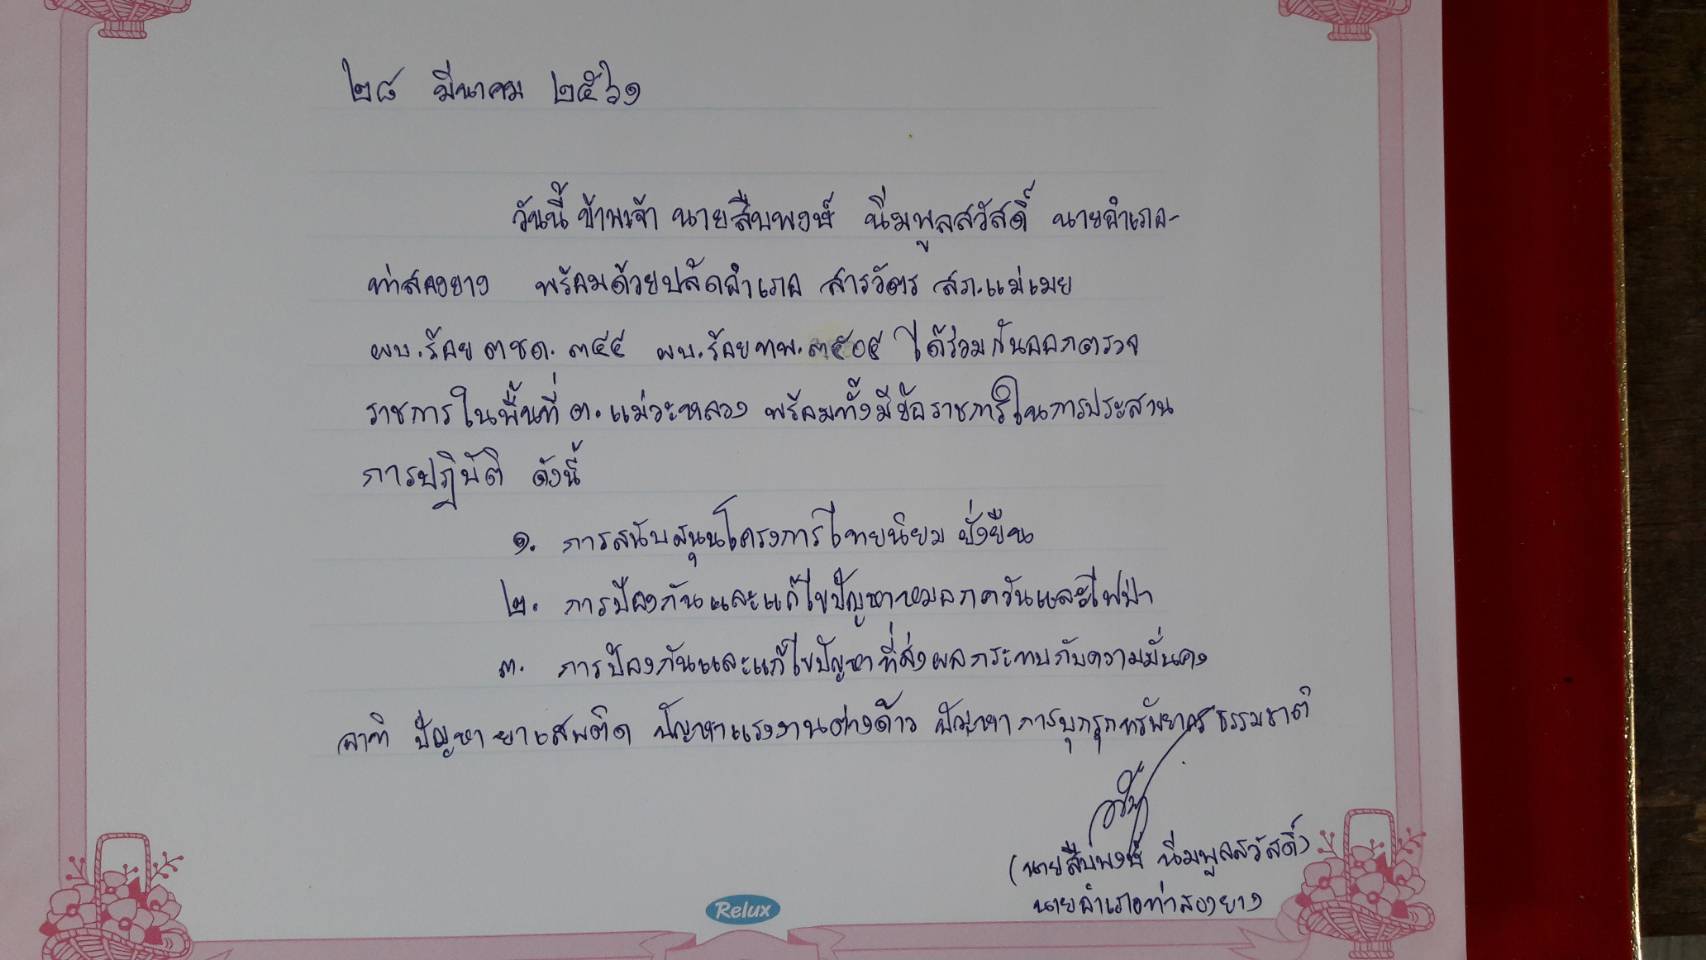 ๒๘ มีนาคม ๒๕๖๑
วันนี้ ข้าพเจ้า นายสืบพงษ์ นิ่มพูลสวัสดิ์ นายอำเภอ-
ท่าสองยาง พร้อมด้วยปลัดอำเภอ สารวัตร สภ.แม่เมย
ผบ.ร้อย ตชด. ๓๔๔ ผบ.ร้อย ทพ.๓๕๐๕ ได้ร่วมกันออกตรวจ
ราชการในพื้นที่ ต.แม่วะหลวง พร้อมทั้งมีข้อราชการในการประสาน
การปฏิบัติ ดังนี้
๑. การสนับสนุนโครงการไทยนิยม ยั่งยืน
๒. การป้องกันและแก้ไขปัญหาหมอกควันและไฟป่า
๓. การป้องกันและแก้ไขปัญหาที่ส่งผลกระทบกับความมั่นคง
อาทิ ปัญหายาเสพติด ปัญหาแรงงานต่างด้าว ปัญหาการบุกรุกทรัพยากรธรรมชาติ
(นายสืบพงษ์ นิ่มพูลสวัสดิ์)
นายอำเภอท่าสองยาง
Relux